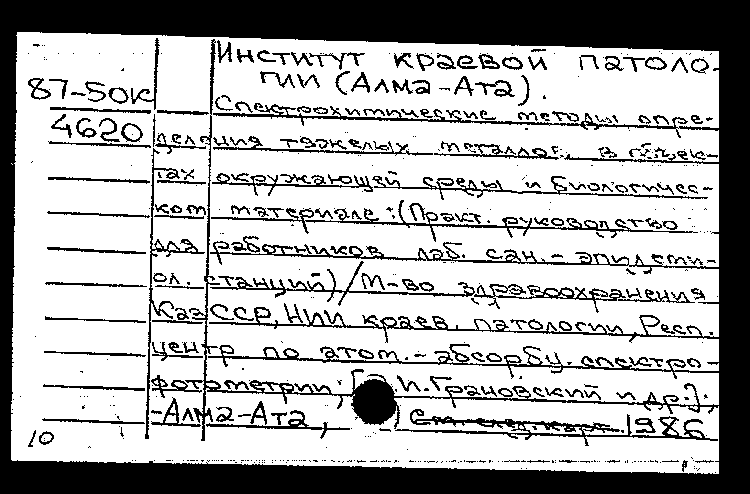 Институт краевой патоло-
87-50К гии (Алма-Ата).
Спектрохимические методы опре-
4620 деления тяжелых металлов в объек-
тах окружающей среды и биологичес-
ком материале: (Практ. руководство
для работников лаб. сан.-эпидеми-
ол. станций) / М-во здравоохранения
КазССР, НИИ краев. патологии, Респ.
центр по атом.-абсорбц. спектро-
фотометрии; [ И. Грановский и др.];
-Алма-Ата, 1986
10